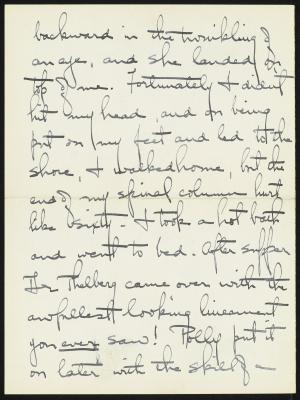 backward in the twinkling of
an eye, and she landed on
top of me. Fortunately I didn't
hit my head, and on being
put on my feet and led to the
shore, I walked home, but the
end of my spinal column hurt
like sixty. I took a hot bath
and went to bed. After supper
Dr. Thelberg came over with the
awfullest looking lineament
you ever saw! Polly put it
on later with the skill of —